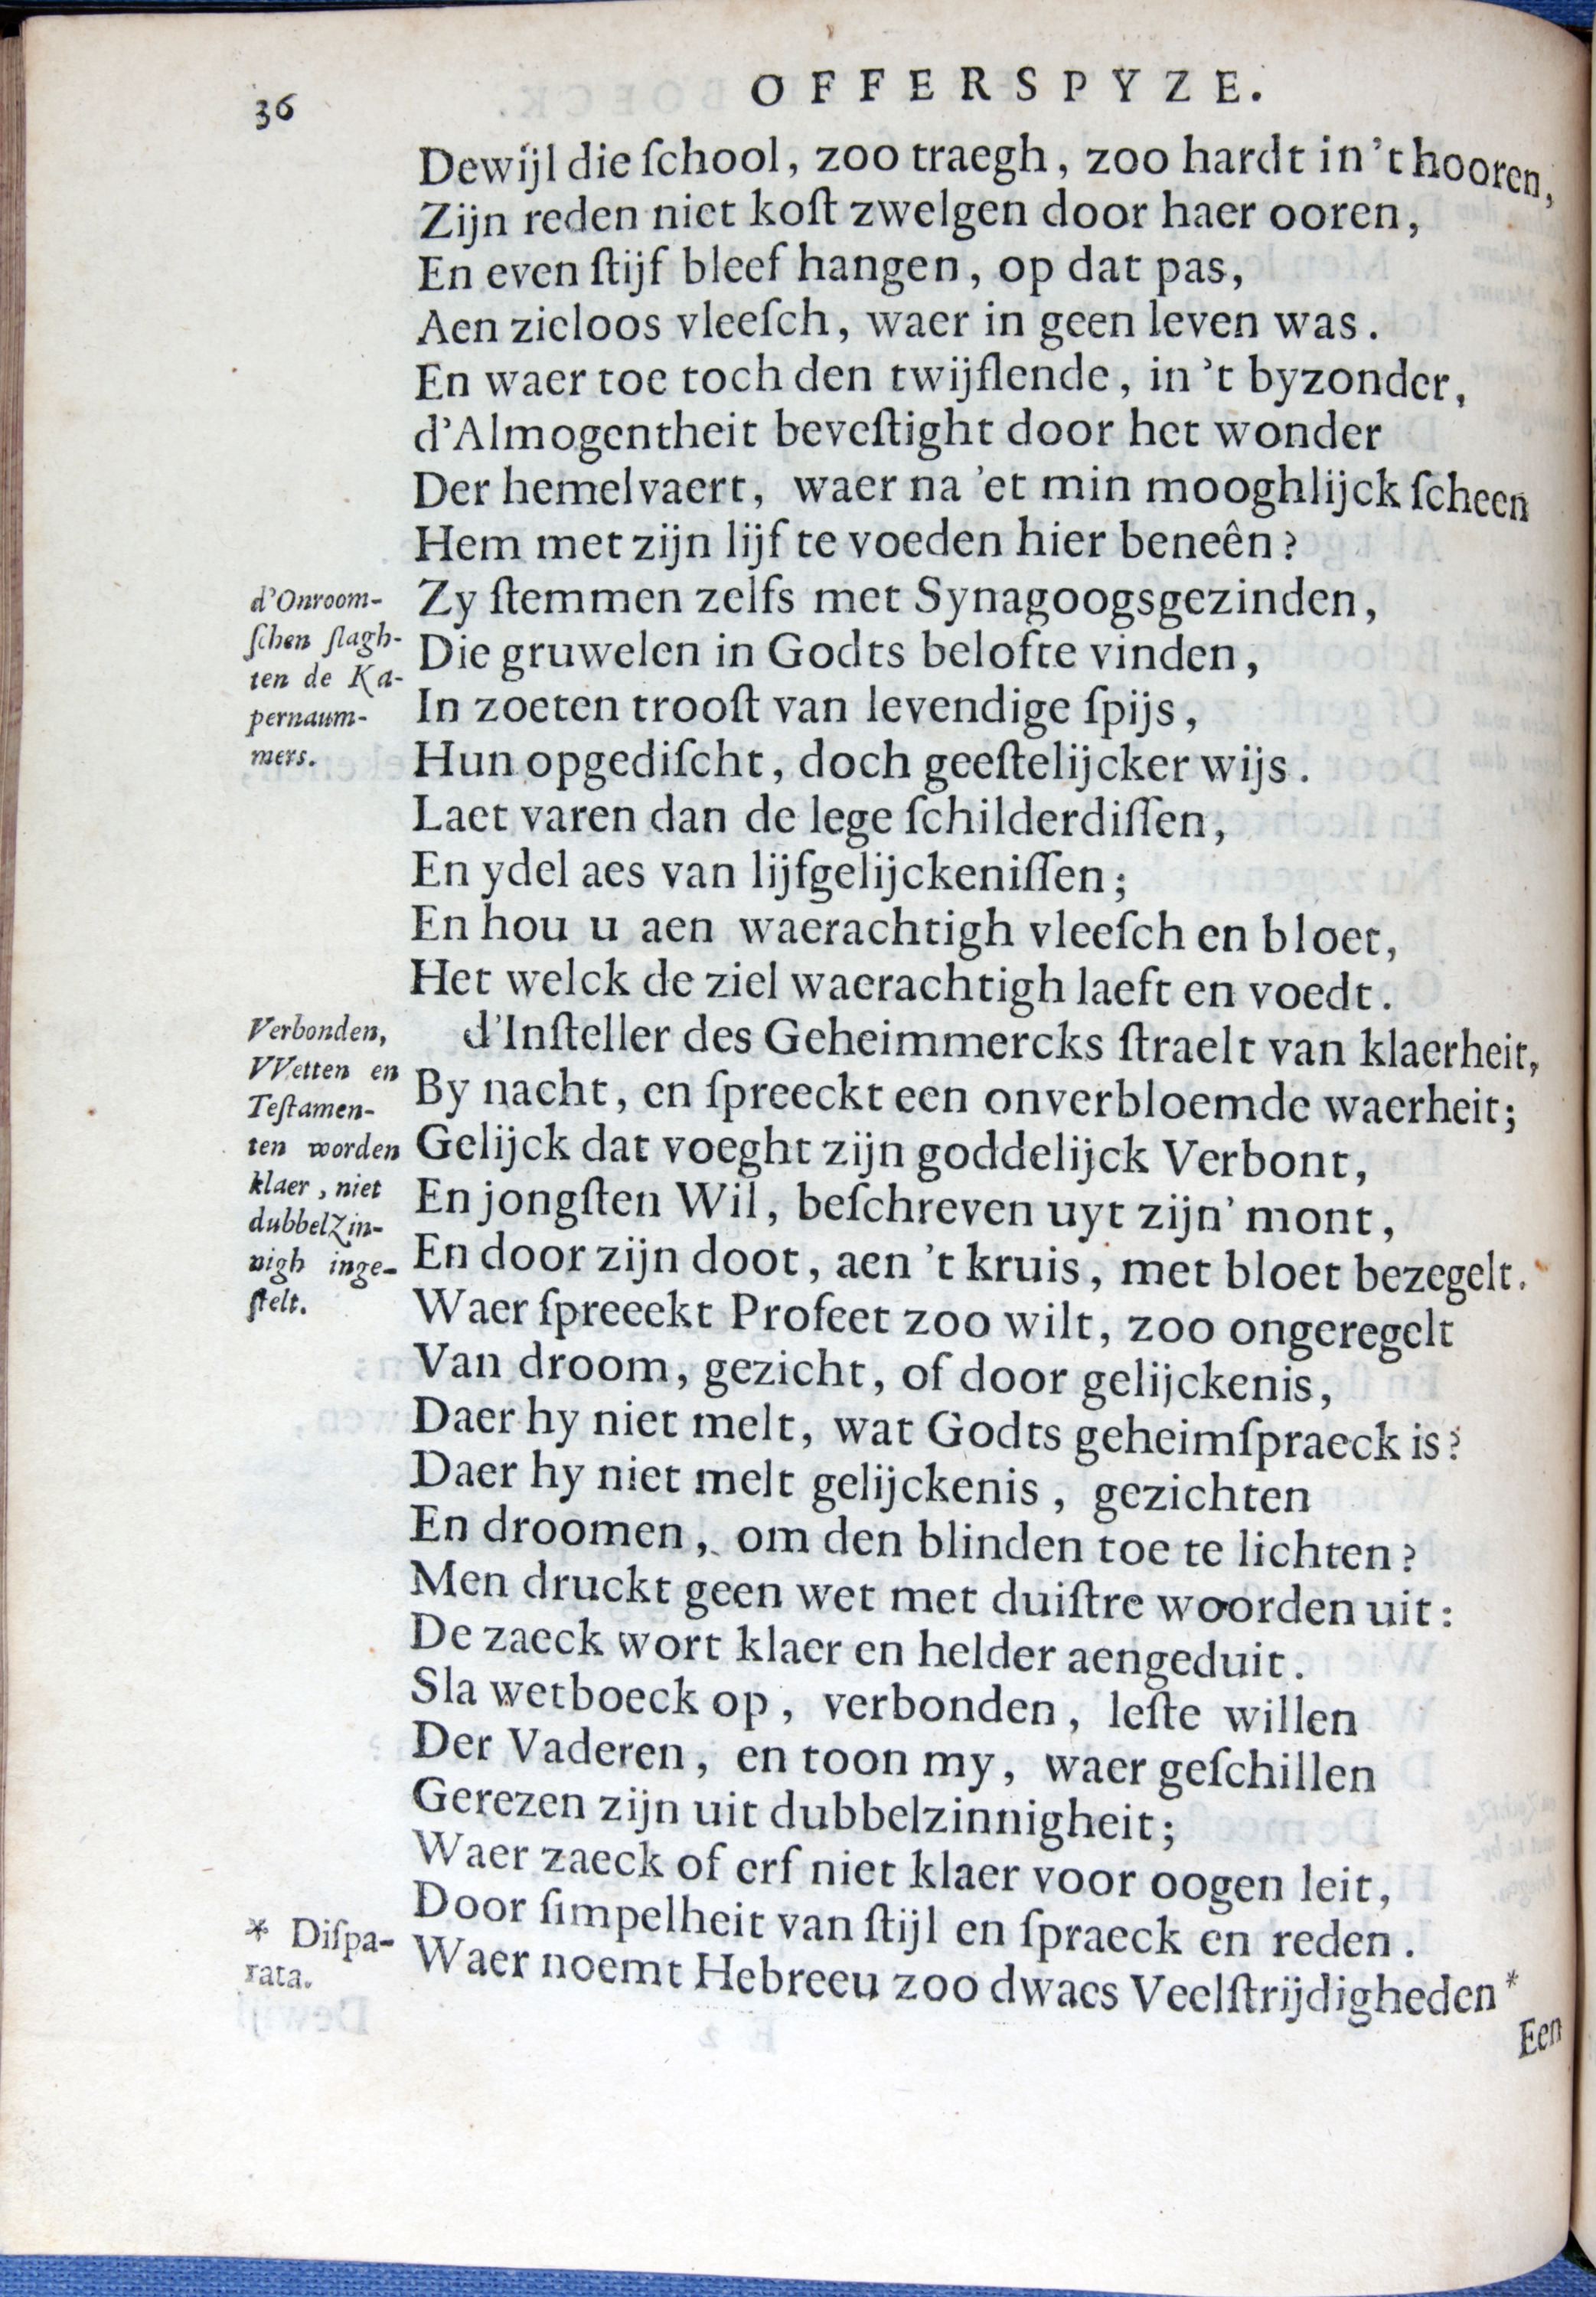 36
OFFERSPYZE.
Dewijl die ſchool, zoo traegh, zoo hardt in 't hooren,
Zijn reden niet koſt zwelgen door haer ooren,
En even ſtijf bleef hangen, op dat pas,
Aen zieloos vleeſch, waer in geen leven was.
En waer toe toch den twijflende, in 't byzonder,
d'Almogentheit beveſtight door het wonder
Der hemelvaert, waer na 'et min mooghlijck ſcheen
Hem met zijn lijf te voeden hier beneên?
d'Onroom-
ſchen ſlagh-
ten de Ka-
pernaum-
mers.
Zy ſtemmen zelfs met Synagoogsgezinden,
Die gruwelen in Godts belofte vinden,
In zoeten trooſt van levendige ſpijs,
Hun opgediſcht, doch geeſtelijcker wijs.
Laet varen dan de lege ſchilderdiſſen,
En ydel aes van lijfgelijckeniſſen;
En hou u aen waerachtigh vleeſch en bloet,
Het welck de ziel waerachtigh laeft en voedt.
Verbonden,
VVetten en
Teſtamen-
ten worden
klaer, niet
dubbelzin-
nigh inge-
ſtelt.
d'Inſteller des Geheimmercks ſtraelt van klaerheit,
By nacht, en ſpreeckt een onverbloemde waerheit;
Gelijck dat voeght zijn goddelijck Verbont,
En jongſten Wil, beſchreven uyt zijn' mont,
En door zijn doot, aen 't kruis, met bloet bezegelt.
Waer ſpreeekt Profeet zoo wilt, zoo ongeregelt
Van droom, gezicht, of door gelijckenis,
Daer hy niet melt, wat Godts geheimſpraeck is?
Daer hy niet melt gelijckenis, gezichten
En droomen, om den blinden toe te lichten?
Men druckt geen wet met duiſtre woorden uit:
De zaeck wort klaer en helder aengeduit.
Sla wetboeck op, verbonden, leſte willen
Der Vaderen, en toon my, waer geſchillen
Gerezen zijn uit dubbelzinnigheit;
Waer zaeck of erf niet klaer voor oogen leit,
Door ſimpelheit van ſtijl en ſpraeck en reden.
* Diſpa-
rata.
Waer noemt Hebreeu zoo dwaes Veelſtrijdigheden*
Een